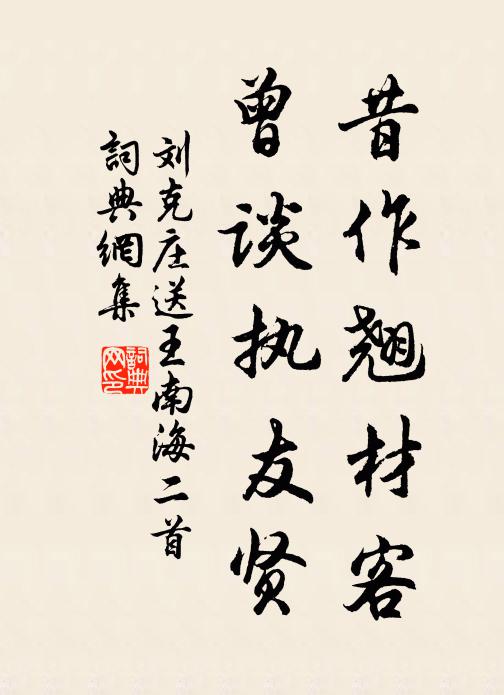 昔作翘材客
曾谈执友贤
刘克庄送王南海二首
詞典網集
詞典网印